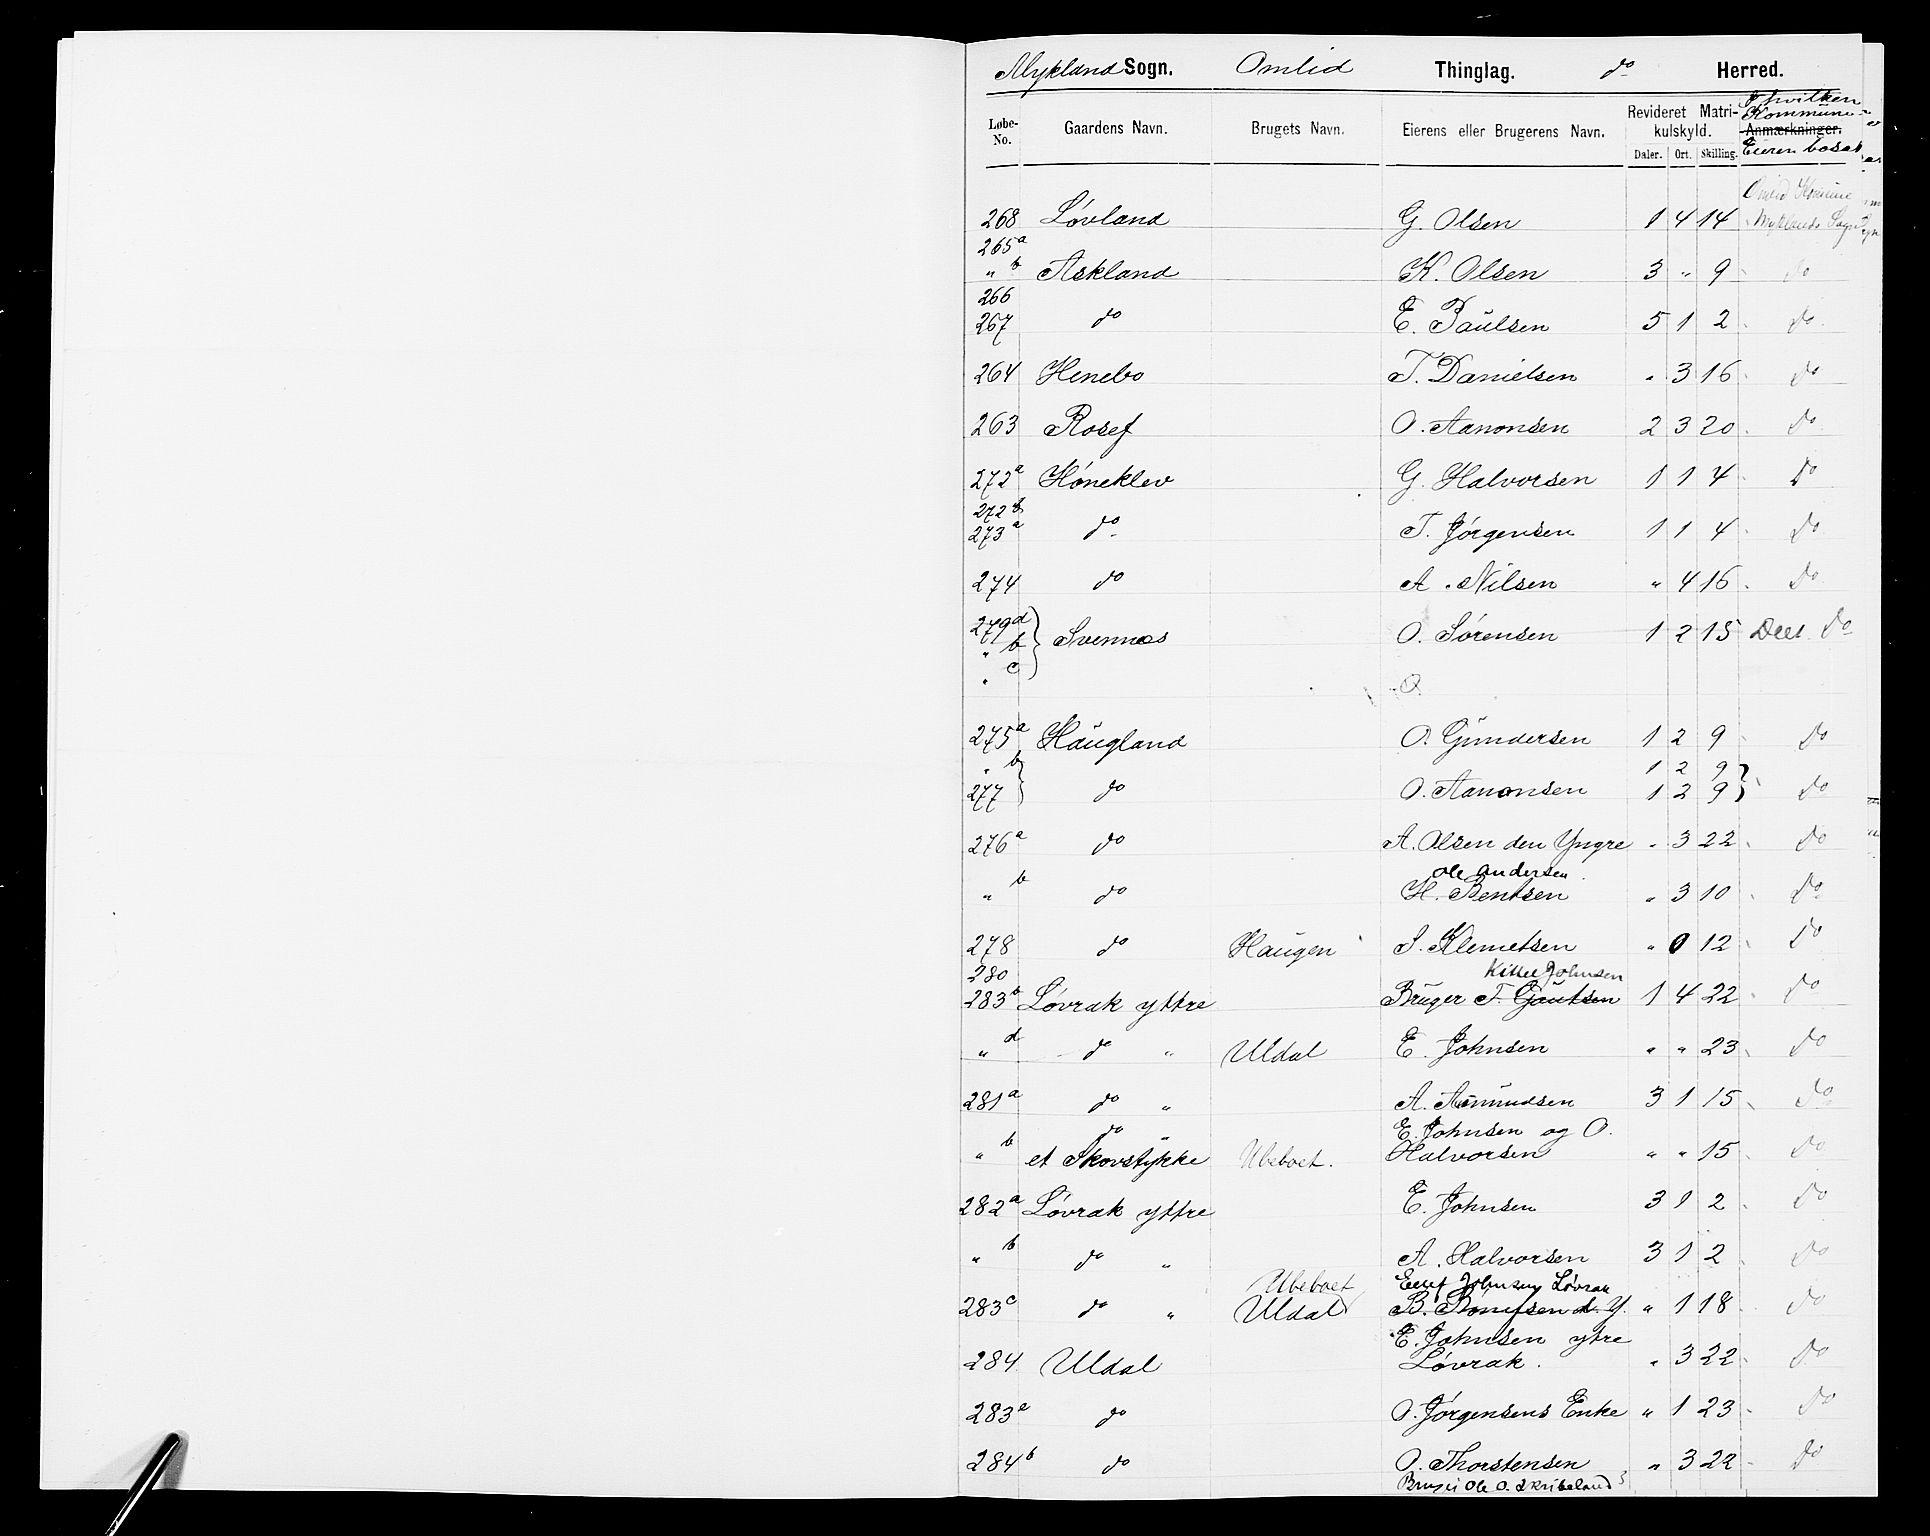 Mykland Sogn. Omlid Thinglag. do Herred.
Løbe-No. Gaardens Navn. Brugets Navn. Eierens eller Brugerens Navn. Revideret Matrikulskyld. Daler. Ort. Skilling. Anmærkninger. I hvilken Kommune Eieren bosat
268 Løvland G. Olsen 1 4 14 Omlid Komune Myklands Sogn
265a
" b Askland K. Olsen 3 " 9 do
266
267 do E. Paulsen 5 1 2 do
264 Henebo T. Danielsen " 3 16 do
263 Rosef O. Aanonsen 2 3 20 do
272a Høneklev G. Halvorsen 1 1 4 do
272b
273a do T. Jørgensen 1 1 4 do
274 do A. Nilsen " 4 16 do
279a
" b Svennes O. Sørensen 1 2 15 do
" c O
275a Haugland O. Gundersen 1 2 9 do
" b 1 2 9
277 do O. Aanonsen 1 2 9 do
276a do A. Olsen den Yngre " 3 22 do
Ole Andersen
" b do H. Bentsen " 3 10 do
278 do Haugen S. Klemetsen " 0 12 do
280 Kittel Johnsen
283b Løvrak yttre Bruger T. Gautsen 1 4 22 do
" d do " Uldal E. Johnsen " " 23 do
281a do " A. Asmundsen 3 1 15 do
do " E. Johnsen og O.
" b et Skovstykke Ubeboet. Halvorsen " " 15 do
282a Løvrak yttre E. Johnsen 3 1 2 do
" b do " A. Halvorsen 3 1 2 do
Ubeboet Johnsen Løvrak
283c do " Uldal B. d. Y. " 1 18 do
E. Johnsen ytre
284 Uldal Løvrak. " 3 22 do
283a do O. Jørgensens Enke " 1 23 do
284b do O. Thorstensen " 3 22 do
Ole O. Skribeland